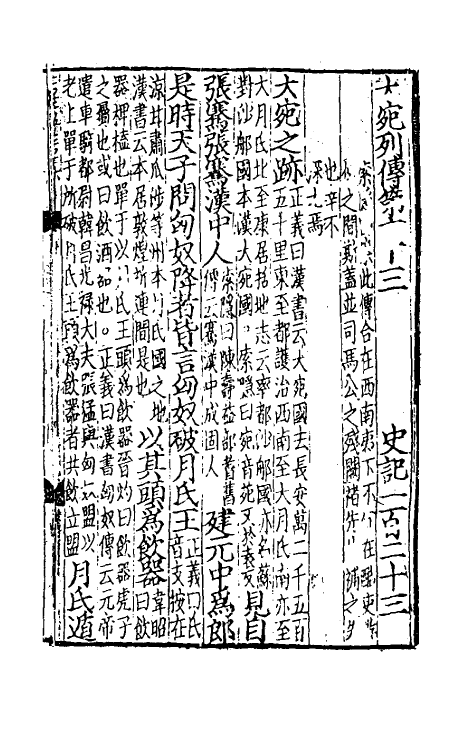 大宛列傳第六十三 史記一百二十三
索隱曰此傳合在西南夷下不合在酷吏游
俠之間斯蓋並司馬公之殘闕褚先生補之失
也幸不
深尤焉
大宛之跡 正義曰漢書云大宛國去長安萬二千五百
五十里東至都護治西南至大月氏南亦至
大月氏北至康居括地志云率都沙那國亦名蘇
對沙那國本漢大宛國。索隱曰宛音菀又於袁反 見自
張騫張騫漢中人 索隱曰陳壽益部耆舊
傳云騫漢中成固人 建元中爲郎
是時天子問匈奴降者皆言匈奴破月氏王 正義曰氏
音支按在
涼甘肅瓜沙等州本月氏國之地
漢書云本居敦煌祁連間是也 以其頭爲飲器 韋昭
曰飲
器椑榼也單于以月氏王頭爲飲器晉灼曰飲器虎子
之屬也或曰飲酒器也。正義曰漢書匈奴傳云元帝
遣車騎都尉韓昌光祿大夫張猛與匈奴盟以
老上單于所破月氏王頭爲飲器者共飲血盟 月氏遁